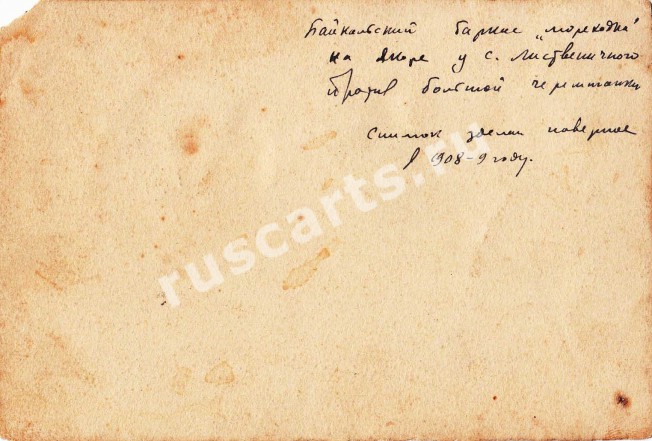 Байкальский баркас „мореходка"
на якоре у с. Лиственичного
против большой черемшанки
Снимок зделан наверное
в 1908-9 году.
ruscarts.ru